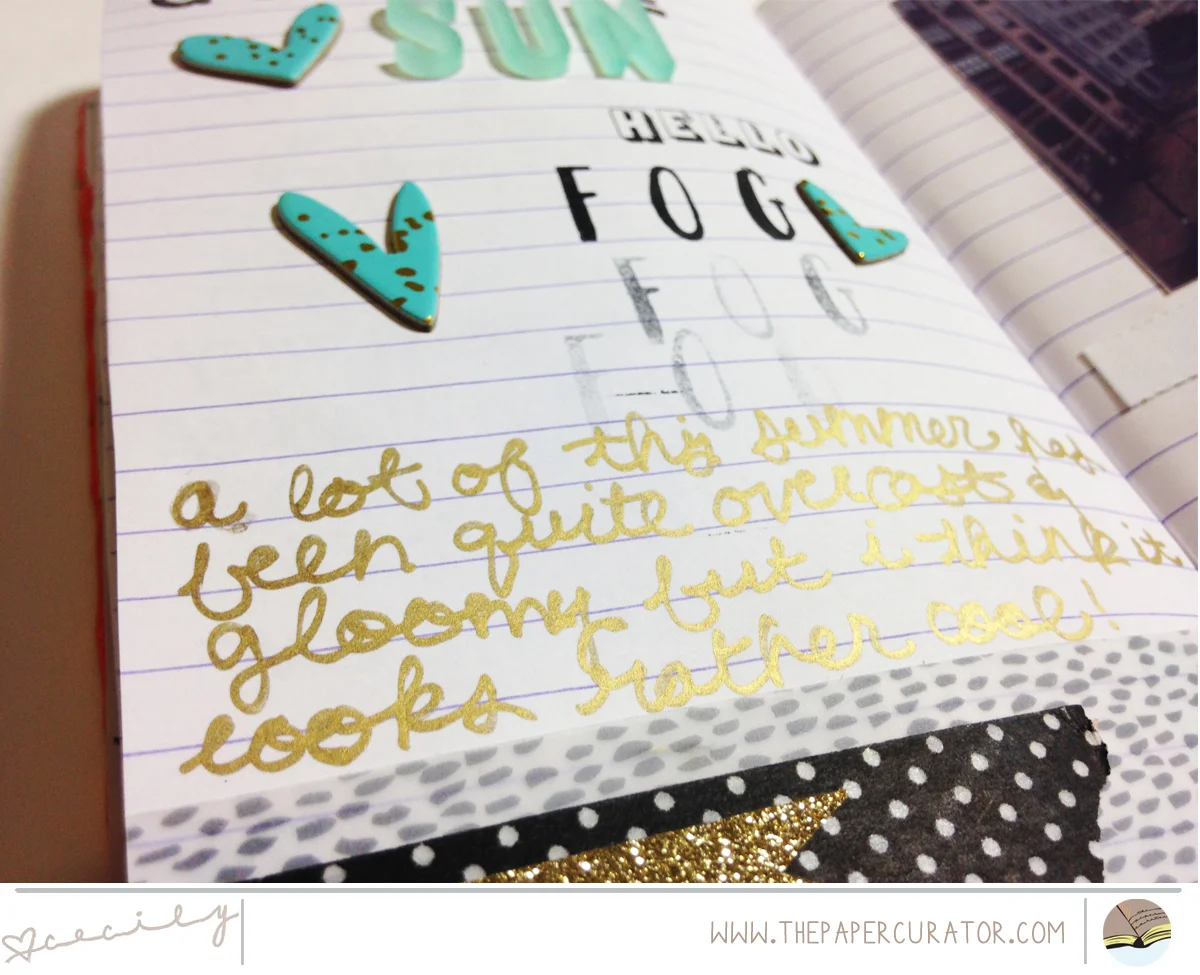 SUN
HELLO
FOG
FOG
FO
a lot of this summer has
been quite overcast &
gloomy but i think it
looks rather cool!
cecily
WWW.THEPAPERCURATOR.COM